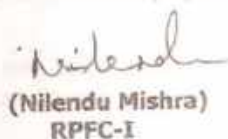 Nilendu
(Nilendu Mishra)
RPFC-I